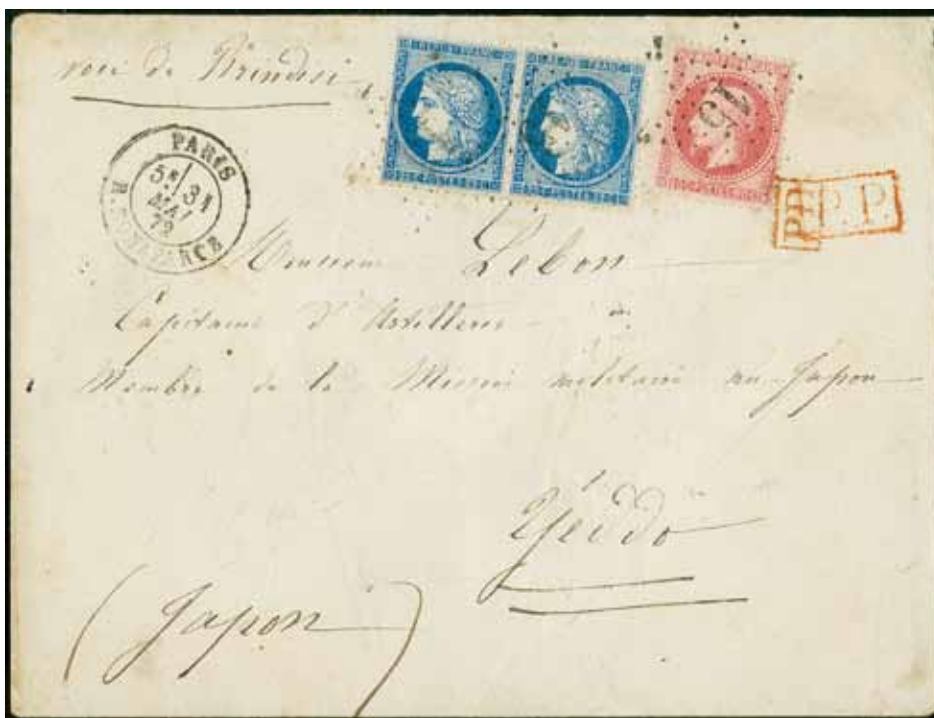 voie de Brindisi
REPUB. FRANC. REPUB. FRANC.
15
PARIS
5E 31
MAI
72
R. BONAPARTE
PD P.P.
Monsieur Lebon
Capitaine d'Artillerie
Membre de la Mission militaire au Japon
Yeddo
(Japon)